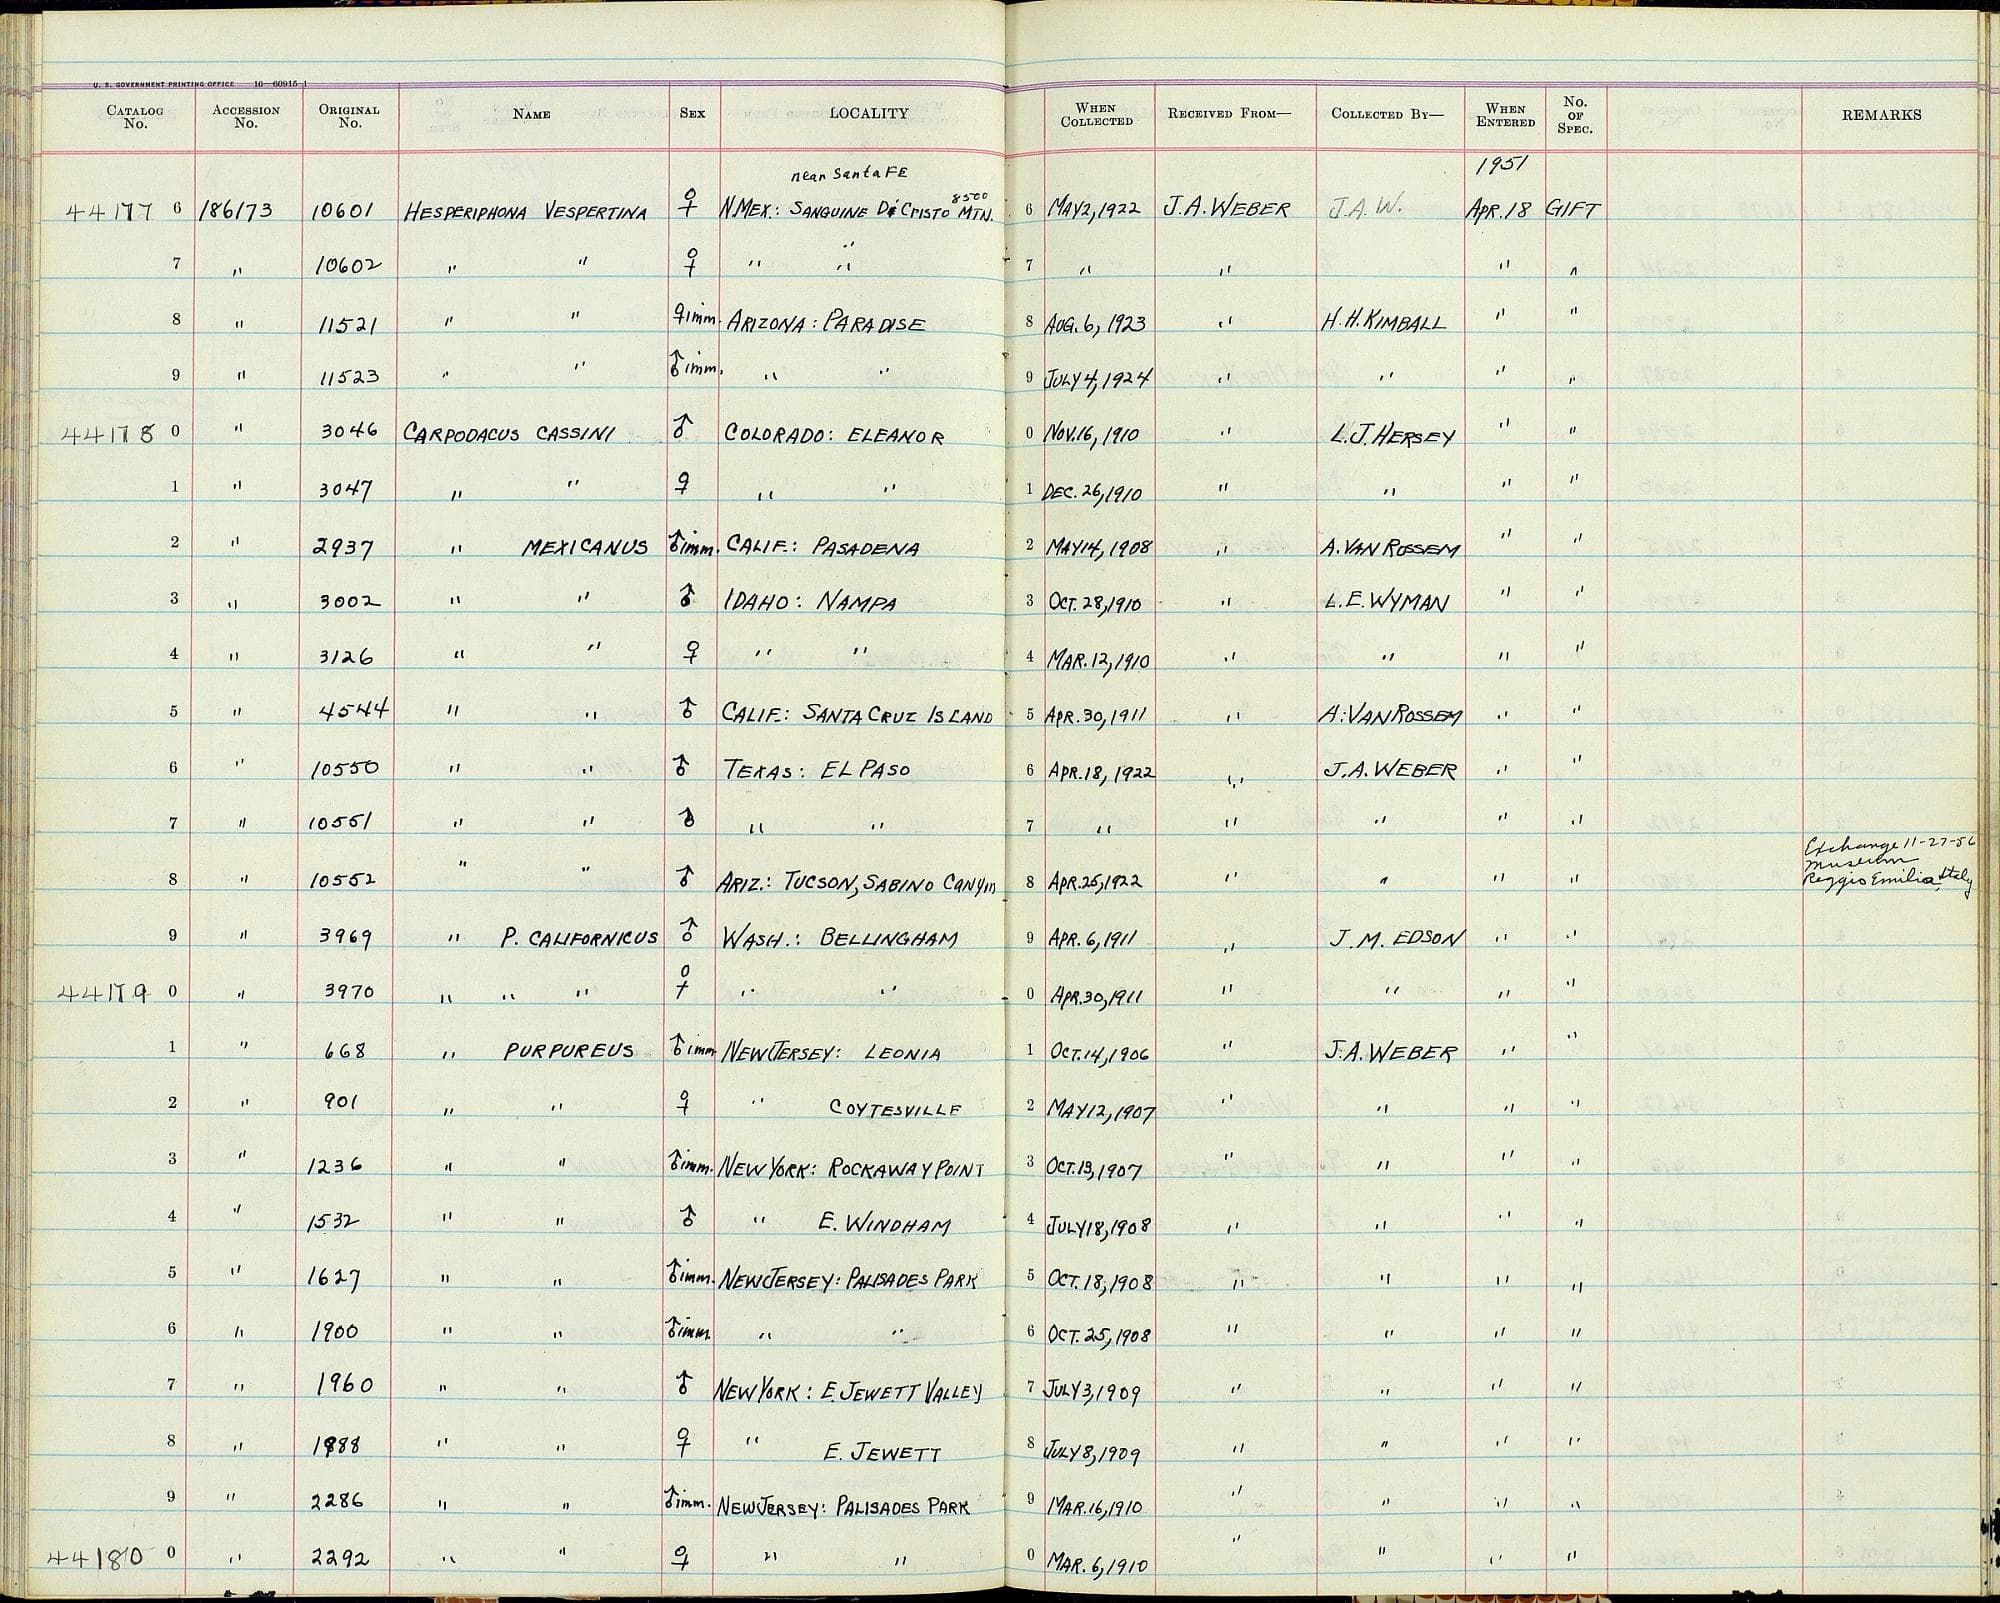 U. S. GOVERNMENT PRINTING OFFICE 16—60915-1
CATALOG No. ACCESSION No. ORIGINAL No. NAME SEX LOCALITY WHEN COLLECTED RECEIVED FROM— COLLECTED BY— WHEN ENTERED No. OF SPEC. REMARKS
near Santa FE 1951
44177 6 186173 10601 HESPERIPHONA VESPERTINA ♀ N.MEX.: SANGUINE Di CRISTO 8500 MTN. 6 MAY 2, 1922 J.A. WEBER J.A.W. Apr. 18 GIFT
7 " 10602 " " ♀ " " " 7 " " " "
8 " 11521 " " ♀ imm. ARIZONA: PARADISE 8 AUG. 6, 1923 " H.H. KIMBALL " "
9 " 11523 " " ♂ imm. " " 9 JULY 4, 1924 " " " "
44178 0 " 3046 CARPODACUS CASSINI ♂ COLORADO: ELEANOR 0 NOV. 16, 1910 " L.J. HERSEY " "
1 " 3047 " " ♀ " " 1 DEC. 26, 1910 " " " "
2 " 2937 " MEXICANUS ♂ imm. CALIF.: PASADENA 2 MAY 14, 1908 " A. VAN ROSSEM " "
3 " 3002 " " ♂ IDAHO: NAMPA 3 OCT. 28, 1910 " L.E. WYMAN " "
4 " 3126 " " ♀ " " 4 MAR. 12, 1910 " " " "
5 " 4544 " " ♂ CALIF.: SANTA CRUZ ISLAND 5 APR. 30, 1911 " A. VAN ROSSEM " "
6 " 10550 " " ♂ TEXAS: EL PASO 6 APR. 18, 1922 " J.A. WEBER " "
7 " 10551 " " ♂ " " 7 " " " " "
8 " 10552 " " ♂ ARIZ.: TUCSON, SABINO CANYON 8 APR. 25, 1922 " " " " Exchange 11-27-56 Museum Reggio Emilia, Italy
9 " 3969 " P. CALIFORNICUS ♂ WASH.: BELLINGHAM 9 APR. 6, 1911 " J.M. EDSON " "
44179 0 " 3970 " " " ♀ " " 0 APR. 30, 1911 " " " "
1 " 668 " PURPUREUS ♂ imm NEW JERSEY: LEONIA 1 OCT. 14, 1906 " J.A. WEBER " "
2 " 901 " " ♀ " COYTESVILLE 2 MAY 12, 1907 " " " "
3 " 1236 " " ♂ imm. NEW YORK: ROCKAWAY POINT 3 OCT. 13, 1907 " " " "
4 " 1532 " " ♂ " E. WINDHAM 4 JULY 18, 1908 " " " "
5 " 1627 " " ♂ imm. NEW JERSEY: PALISADES PARK 5 OCT. 18, 1908 " " " "
6 " 1900 " " ♂ imm. " " 6 OCT. 25, 1908 " " " "
7 " 1960 " " ♂ NEW YORK: E. JEWETT VALLEY 7 JULY 3, 1909 " " " "
8 " 1988 " " ♀ " E. JEWETT 8 JULY 8, 1909 " " " "
9 " 2286 " " ♂ imm. NEW JERSEY: PALISADES PARK 9 MAR. 16, 1910 " " " "
44180 0 " 2292 " " ♀ " " 0 MAR. 6, 1910 " " " "